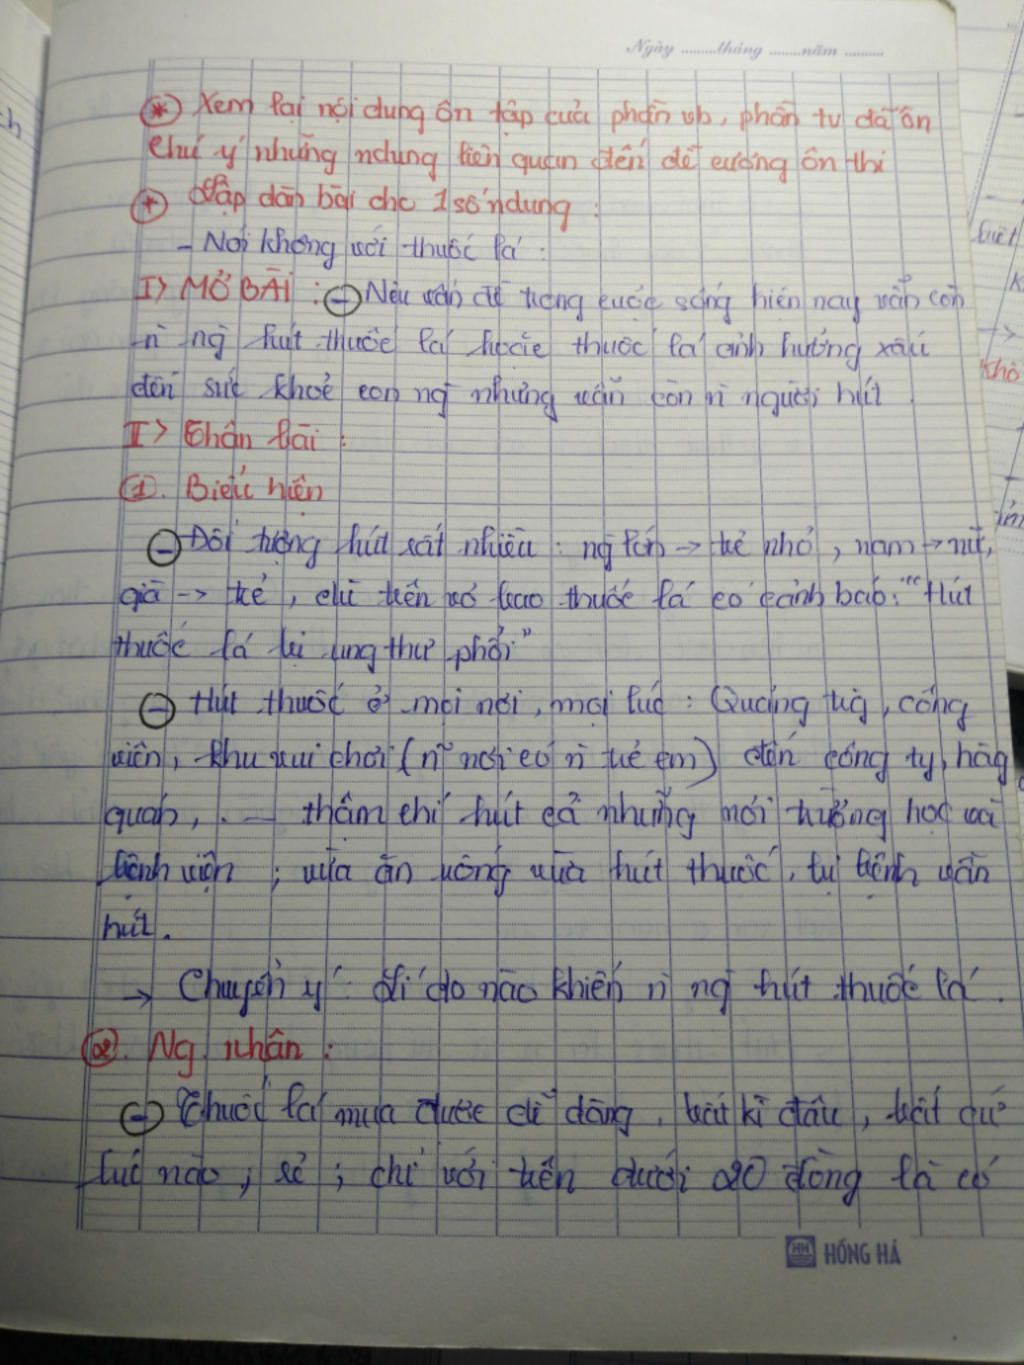 Ngày ........tháng ........năm ..........
* Xem lại nội dung ôn tập của phần vb, phần tv đã ôn
Chú ý những ndung liên quan đến đề cương ôn thi
+ Lập dàn bài cho 1 số ndung :
- Nói không với thuốc lá :
I> MỞ BÀI : - Nêu vấn đề trong cuộc sống hiện nay vẫn còn
n ng hút thuốc lá hoặc thuốc lá ảnh hưởng xấu
đến sức khoẻ con ng nhưng vẫn còn n người hút
II> Thân bài :
1. Biểu hiện
- Đối tượng hút rất nhiều : ng lớn → trẻ nhỏ, nam → nữ,
già → trẻ, dù trên vỏ bao thuốc lá có cảnh báo: "Hút
thuốc lá bị ung thư phổi"
- Hút thuốc ở mọi nơi, mọi lúc : Quảng trg, công
viên, khu vui chơi (n~ nơi có n trẻ em) đến công ty, hàg
quán, . — thậm chí hút cả những môi trường học và
bệnh viện ; vừa ăn uống vừa hút thuốc, bị bệnh vẫn
hút.
→ Chuyển ý : Lí do nào khiến n ng hút thuốc lá.
2. Ng nhân :
- Thuốc lá mua được dễ dàng, bất kì đâu, bất cứ
lúc nào, rẻ ; chỉ với tiền dưới 20 đồng là có
HỒNG HÀ
luết
Khô